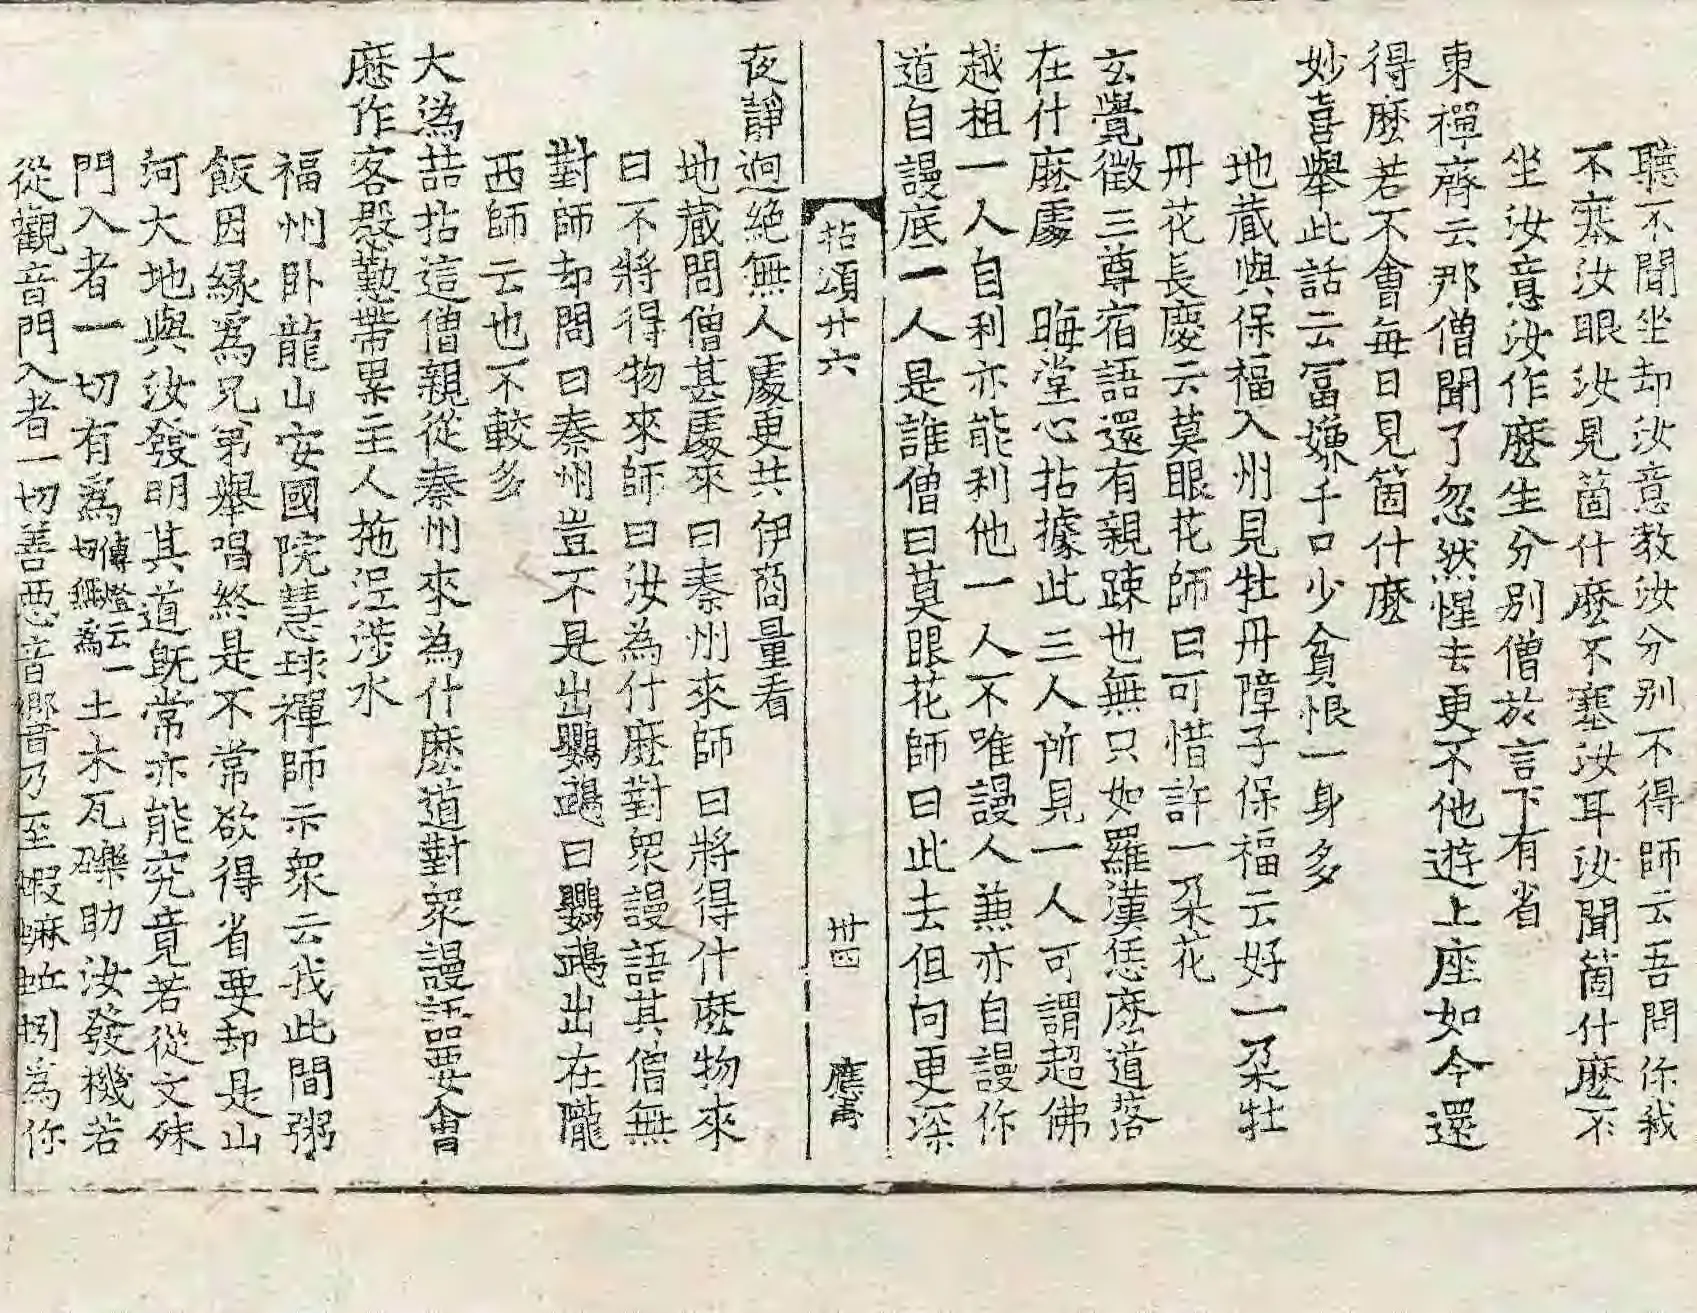 聽不聞坐却汝意教汝分別不得師云吾問你我
不塞汝眼汝見箇什麽不塞汝耳汝聞箇什麽不
坐汝意汝作麽生分別僧於言下有省
東禪齊云那僧聞了忽然惺去更不他遊上座如今還
得麽若不會每日見箇什麽
妙喜舉此話云冨嫌千口少貧恨一身多
地藏與保福入州見牡丹障子保福云好一朶牡
丹花長慶云莫眼花師曰可惜許一朶花
玄覺徵三尊宿語還有親疎也無只如羅漢恁麽道落
在什麽處　晦堂心拈據此三人所見一人可謂超佛
越祖一人自利亦能利他一人不唯謾人兼亦自謾你
道自謾底一人是誰僧曰莫眼花師曰此去但向更深
拈頌廿六　卅四
夜靜迥絕無人處更共伊商量看
地藏問僧甚處來曰秦州來師曰將得什麽物來
曰不將得物來師曰汝為什麽對眾謾語其僧無
對師却問曰秦州豈不是出鸚鵡曰鸚鵡出在隴
西師云也不較多
大溈喆拈這僧親從秦州來為什麽道對眾謾語要會
麽作客慇懃帶累主人拖泥涉水
福州卧龍山安國院慧球禪師示眾云我此間粥
飯因緣爲兄弟舉唱終是不常欲得省要却是山
河大地與汝發明其道旣常亦能究竟若從文殊
門入者一切有爲傳燈云一切無爲土木瓦礫助汝發機若
從觀音門入者一切善惡音響乃至蝦蟆蚯蚓為你